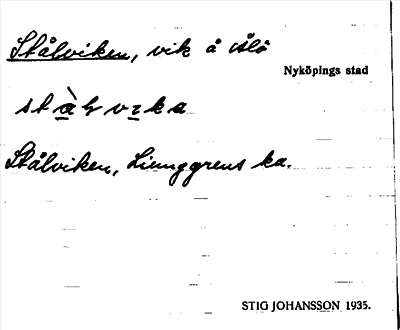 Stålviken, vik å Ålö
Nyköpings stad
Stålviken, Ljunggrens ka.
STIG JOHANSSON 1935.